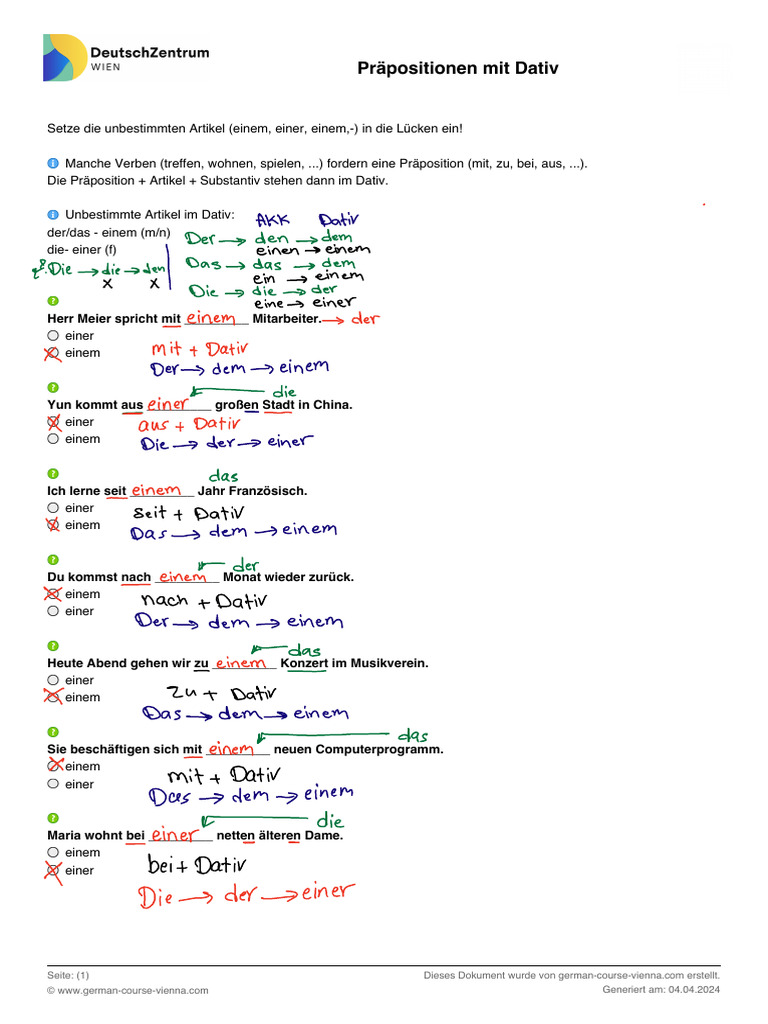 DeutschZentrum
WIEN
Präpositionen mit Dativ
Setze die unbestimmten Artikel (einem, einer, einem,-) in die Lücken ein!
Manche Verben (treffen, wohnen, spielen, ...) fordern eine Präposition (mit, zu, bei, aus, ...).
Die Präposition + Artikel + Substantiv stehen dann im Dativ.
Unbestimmte Artikel im Dativ:
der/das - einem (m/n)
die- einer (f)
AKK Dativ
Der → den → dem
einen → einem
Das → das → dem
ein → einem
Die → die → der
eine → einer
Die → die → den
x x
Herr Meier spricht mit einem Mitarbeiter. → der
einer
einem
mit + Dativ
Der → dem → einem
die
Yun kommt aus einer großen Stadt in China.
einer
einem
aus + Dativ
Die → der → einer
das
Ich lerne seit einem Jahr Französisch.
einer
einem
seit + Dativ
Das → dem → einem
der
Du kommst nach einem Monat wieder zurück.
einem
einer
nach + Dativ
Der → dem → einem
das
Heute Abend gehen wir zu einem Konzert im Musikverein.
einer
einem
zu + Dativ
Das → dem → einem
das
Sie beschäftigen sich mit einem neuen Computerprogramm.
einem
einer
mit + Dativ
Das → dem → einem
die
Maria wohnt bei einer netten älteren Dame.
einem
einer
bei + Dativ
Die → der → einer
Seite: (1)
Dieses Dokument wurde von german-course-vienna.com erstellt.
© www.german-course-vienna.com
Generiert am: 04.04.2024